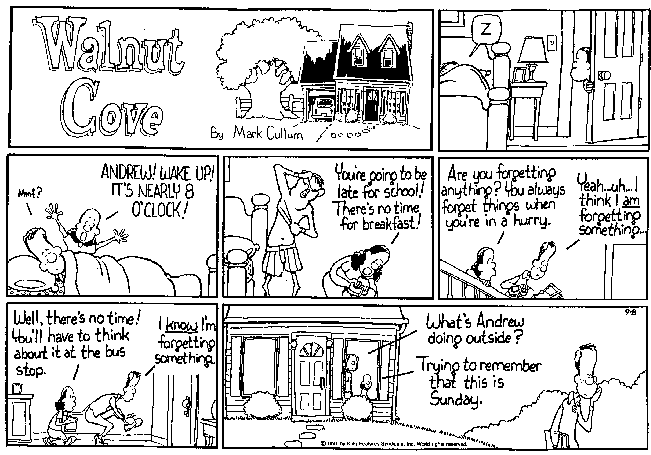 Walnut
Cove
By Mark Cullum
Z
Mmf?
ANDREW! WAKE UP!
IT'S NEARLY 8
O'CLOCK!
You're going to be
late for school!
There's no time
for breakfast!
Are you forgetting
anything? You always
forget things when
you're in a hurry.
Yeah...uh...I
think I am
forgetting
something...
Well, there's no time!
You'll have to think
about it at the bus
stop.
I know I'm
forgetting
something.
9-8
What's Andrew
doing outside?
Trying to remember
that this is
Sunday.
by King Features Syndicate, Inc. World rights reserved.